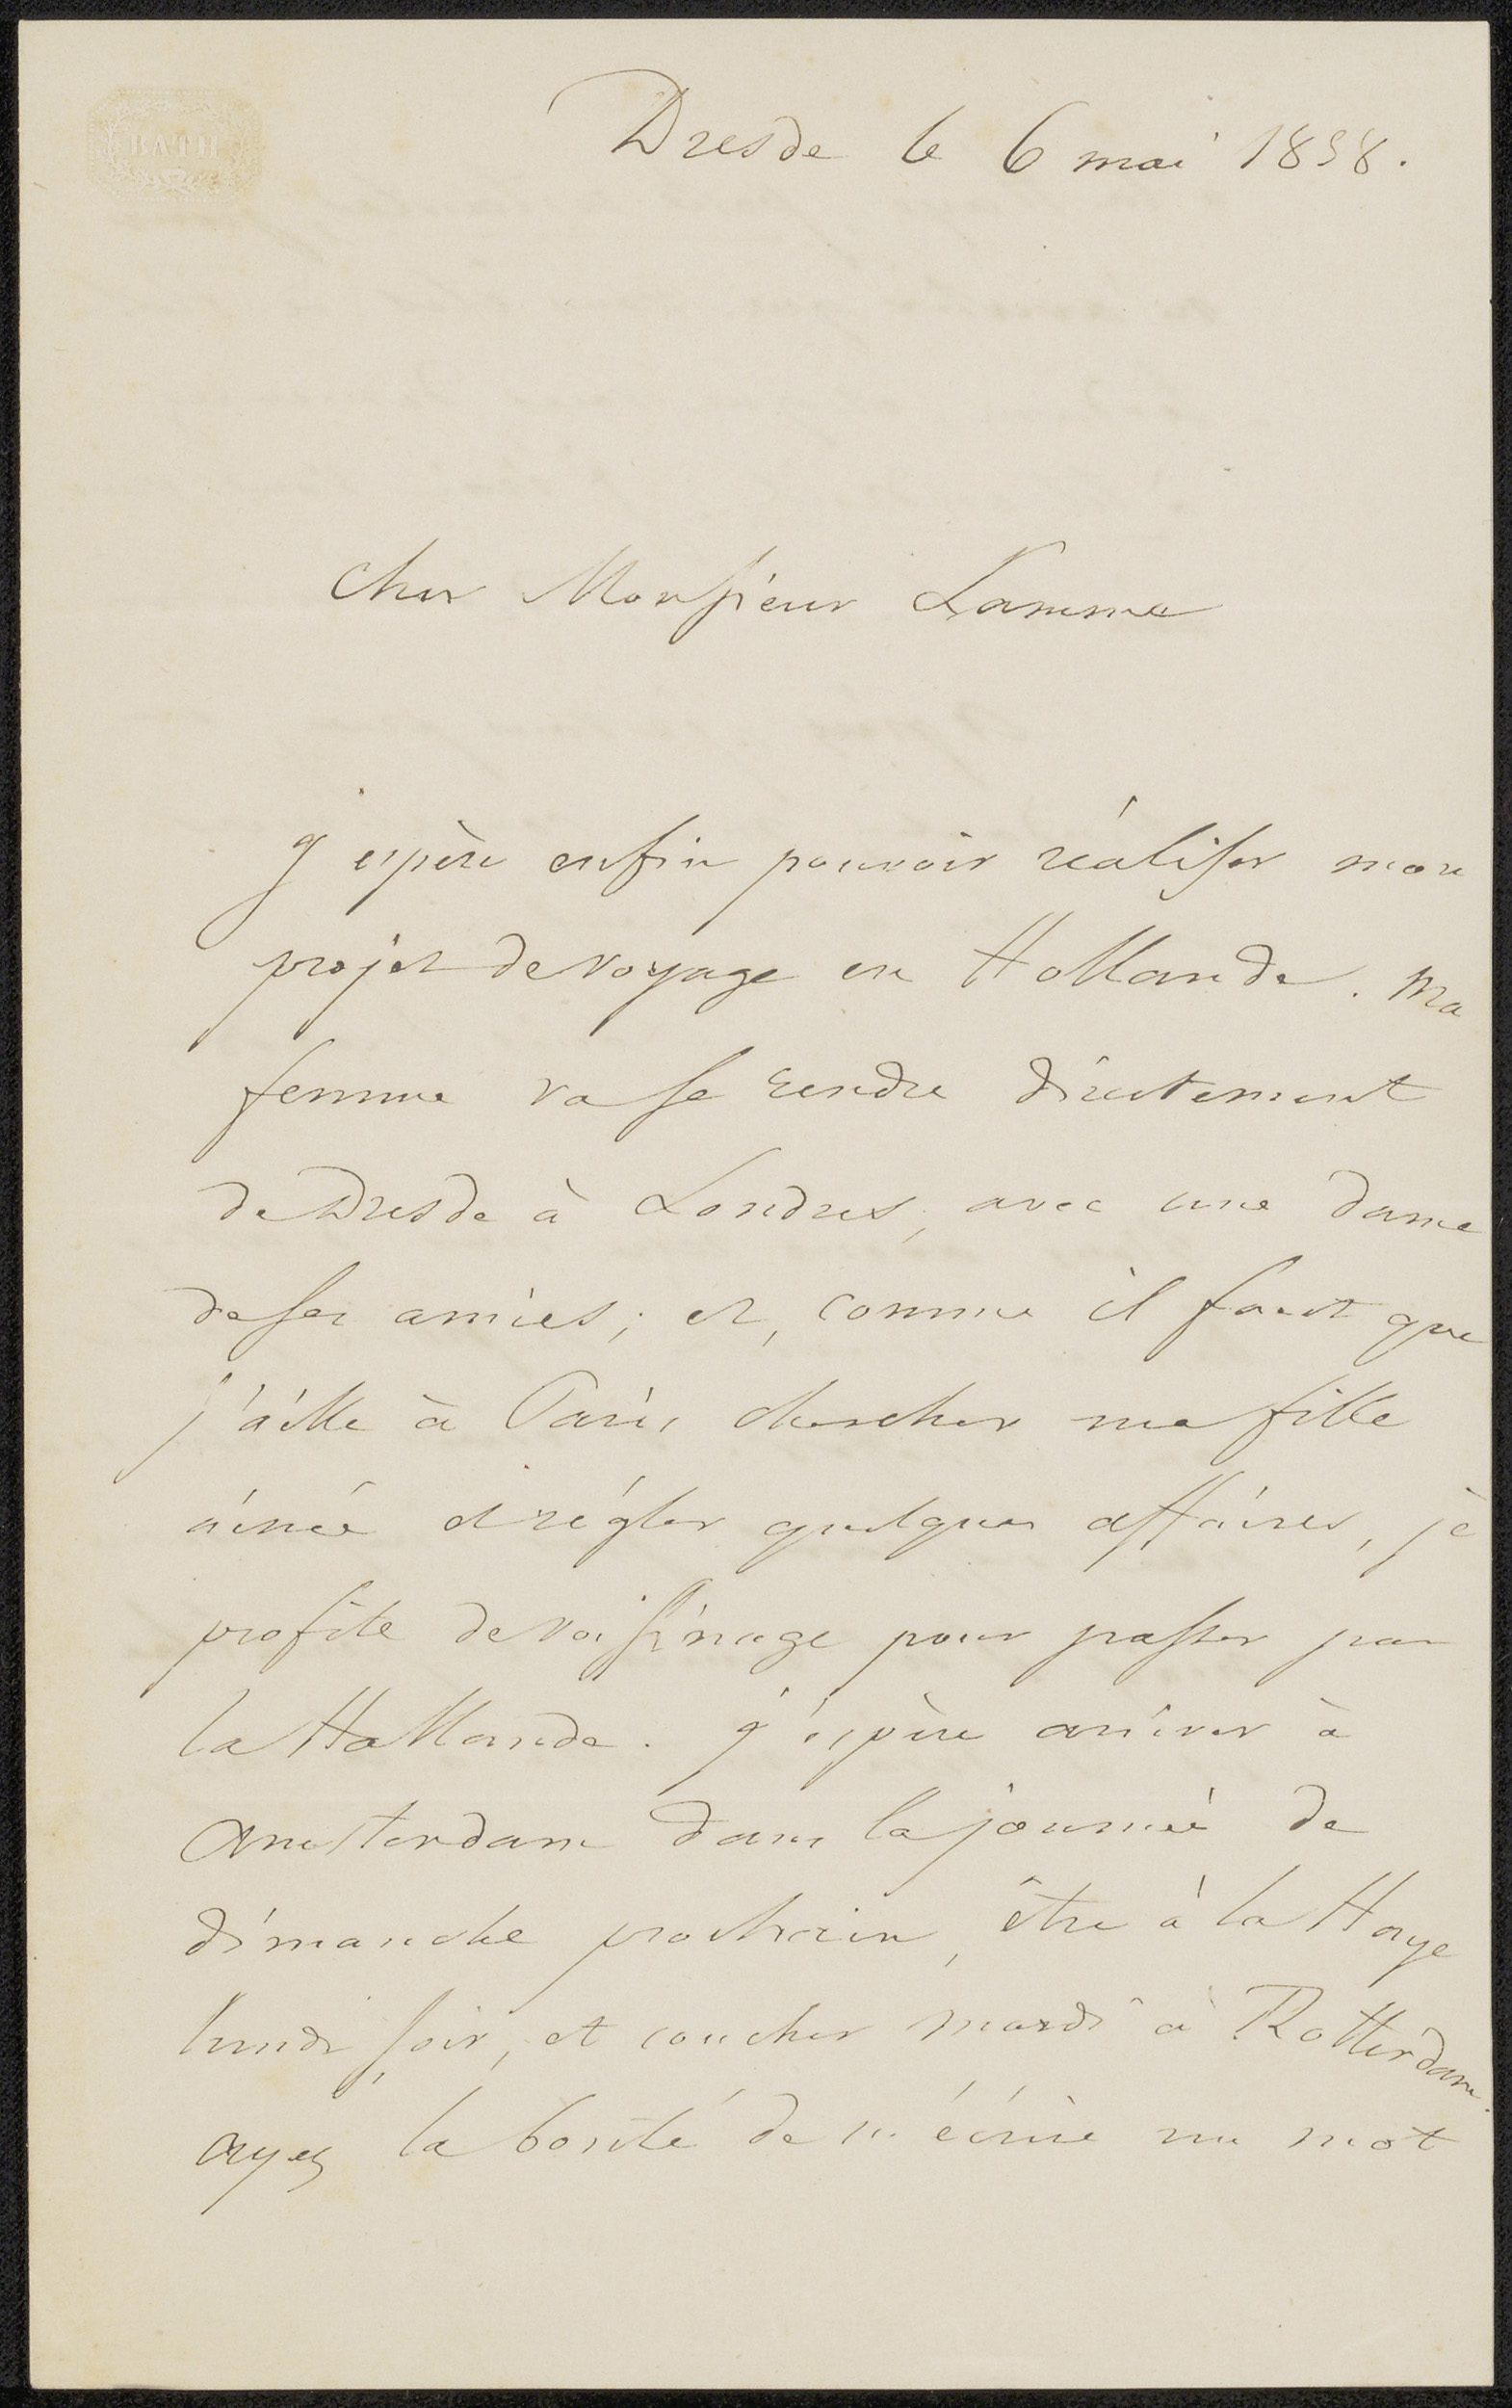 BATH
Dresde le 6 mai 1858.
Cher Monsieur Lamme
J'espère enfin pouvoir réaliser mon
projet de voyage en Hollande. Ma
femme va se rendre directement
de Dresde à Londres, avec une dame
de ses amies; et, comme il faut que
j'aille à Paris chercher ma fille
ainée et régler quelques affaires, je
profite de voisinage pour passer par
la Hollande. J'espère arriver à
Amsterdam dans la journée de
dimanche prochain, être à la Haye
lundi soir, et coucher mardi à Rotterdam.
ayez la bonté de m'écrire un mot